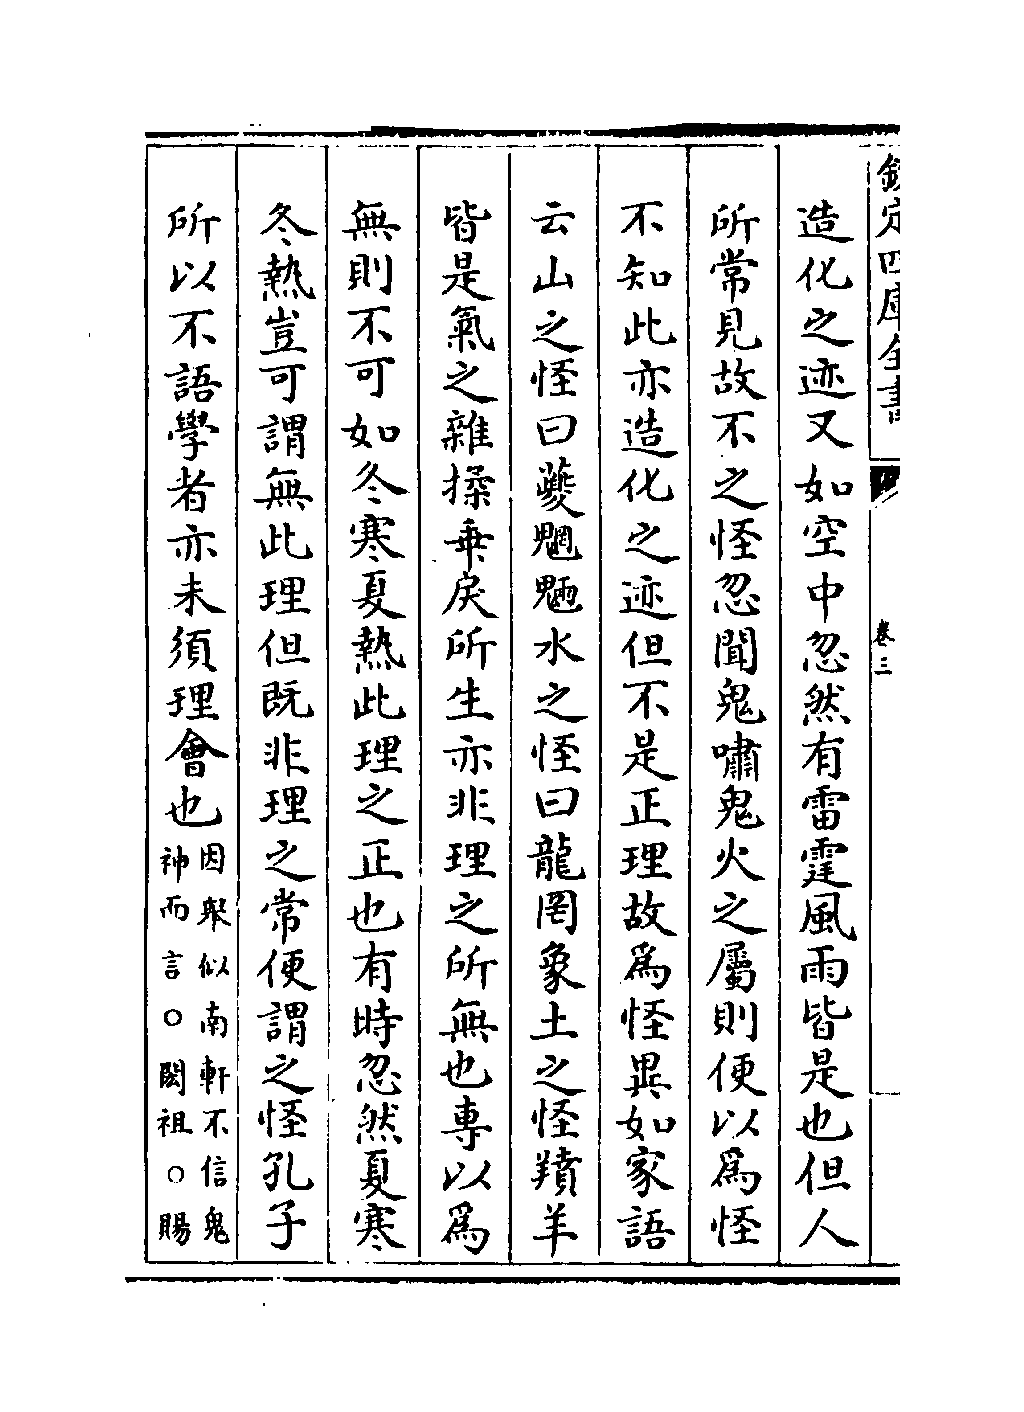 欽定四庫全書
卷三
造化之迹又如空中忽然有雷霆風雨皆是也但人
所常見故不之怪忽聞鬼嘯鬼火之屬則便以為怪
不知此亦造化之迹但不是正理故為怪異如家語
云山之怪曰夔魍魎水之怪曰龍罔象土之怪羵羊
皆是氣之雜揉乖戾所生亦非理之所無也專以為
無則不可如冬寒夏熱此理之正也有時忽然夏寒
冬熱豈可謂無此理但既非理之常便謂之怪孔子
所以不語學者亦未須理會也
因舉似南軒不信鬼
神而言○閎祖○賜